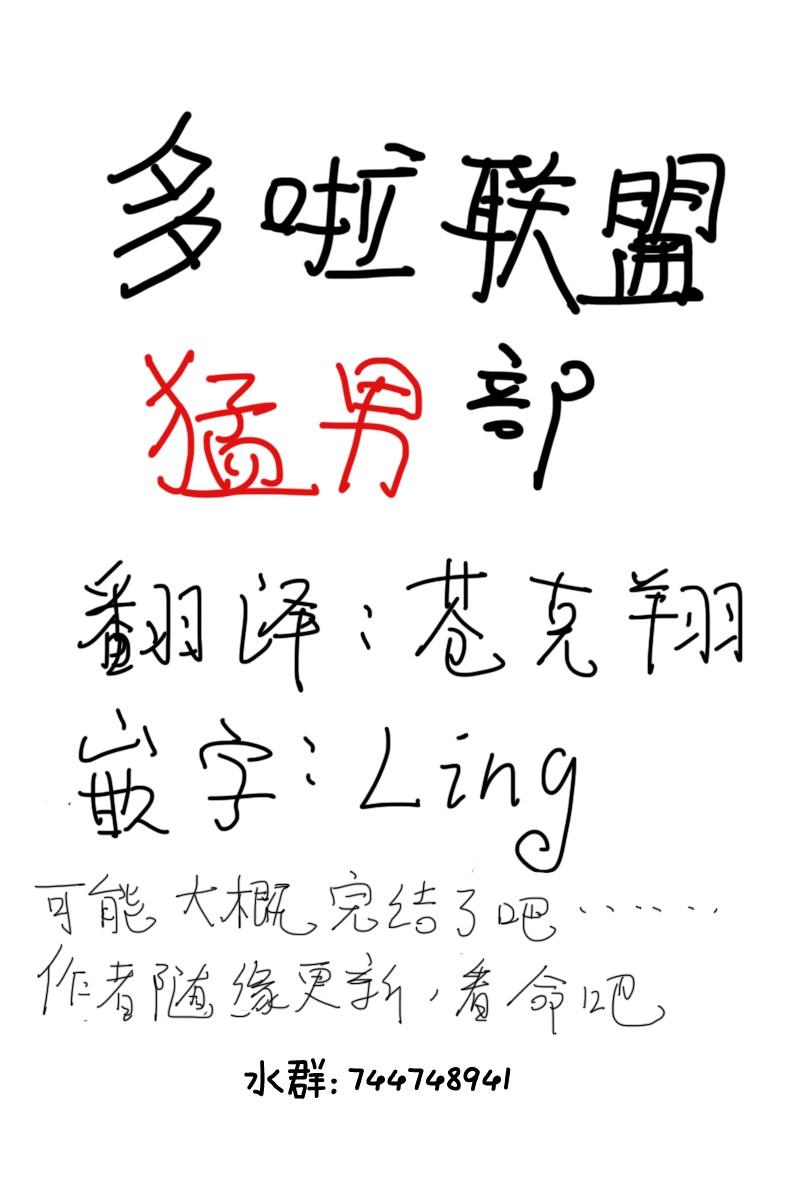 多啦联盟
猛男部
翻译：苍克翔
嵌字：Ling
可能大概完结了吧……
作者随缘更新，看命吧
水群：744748941